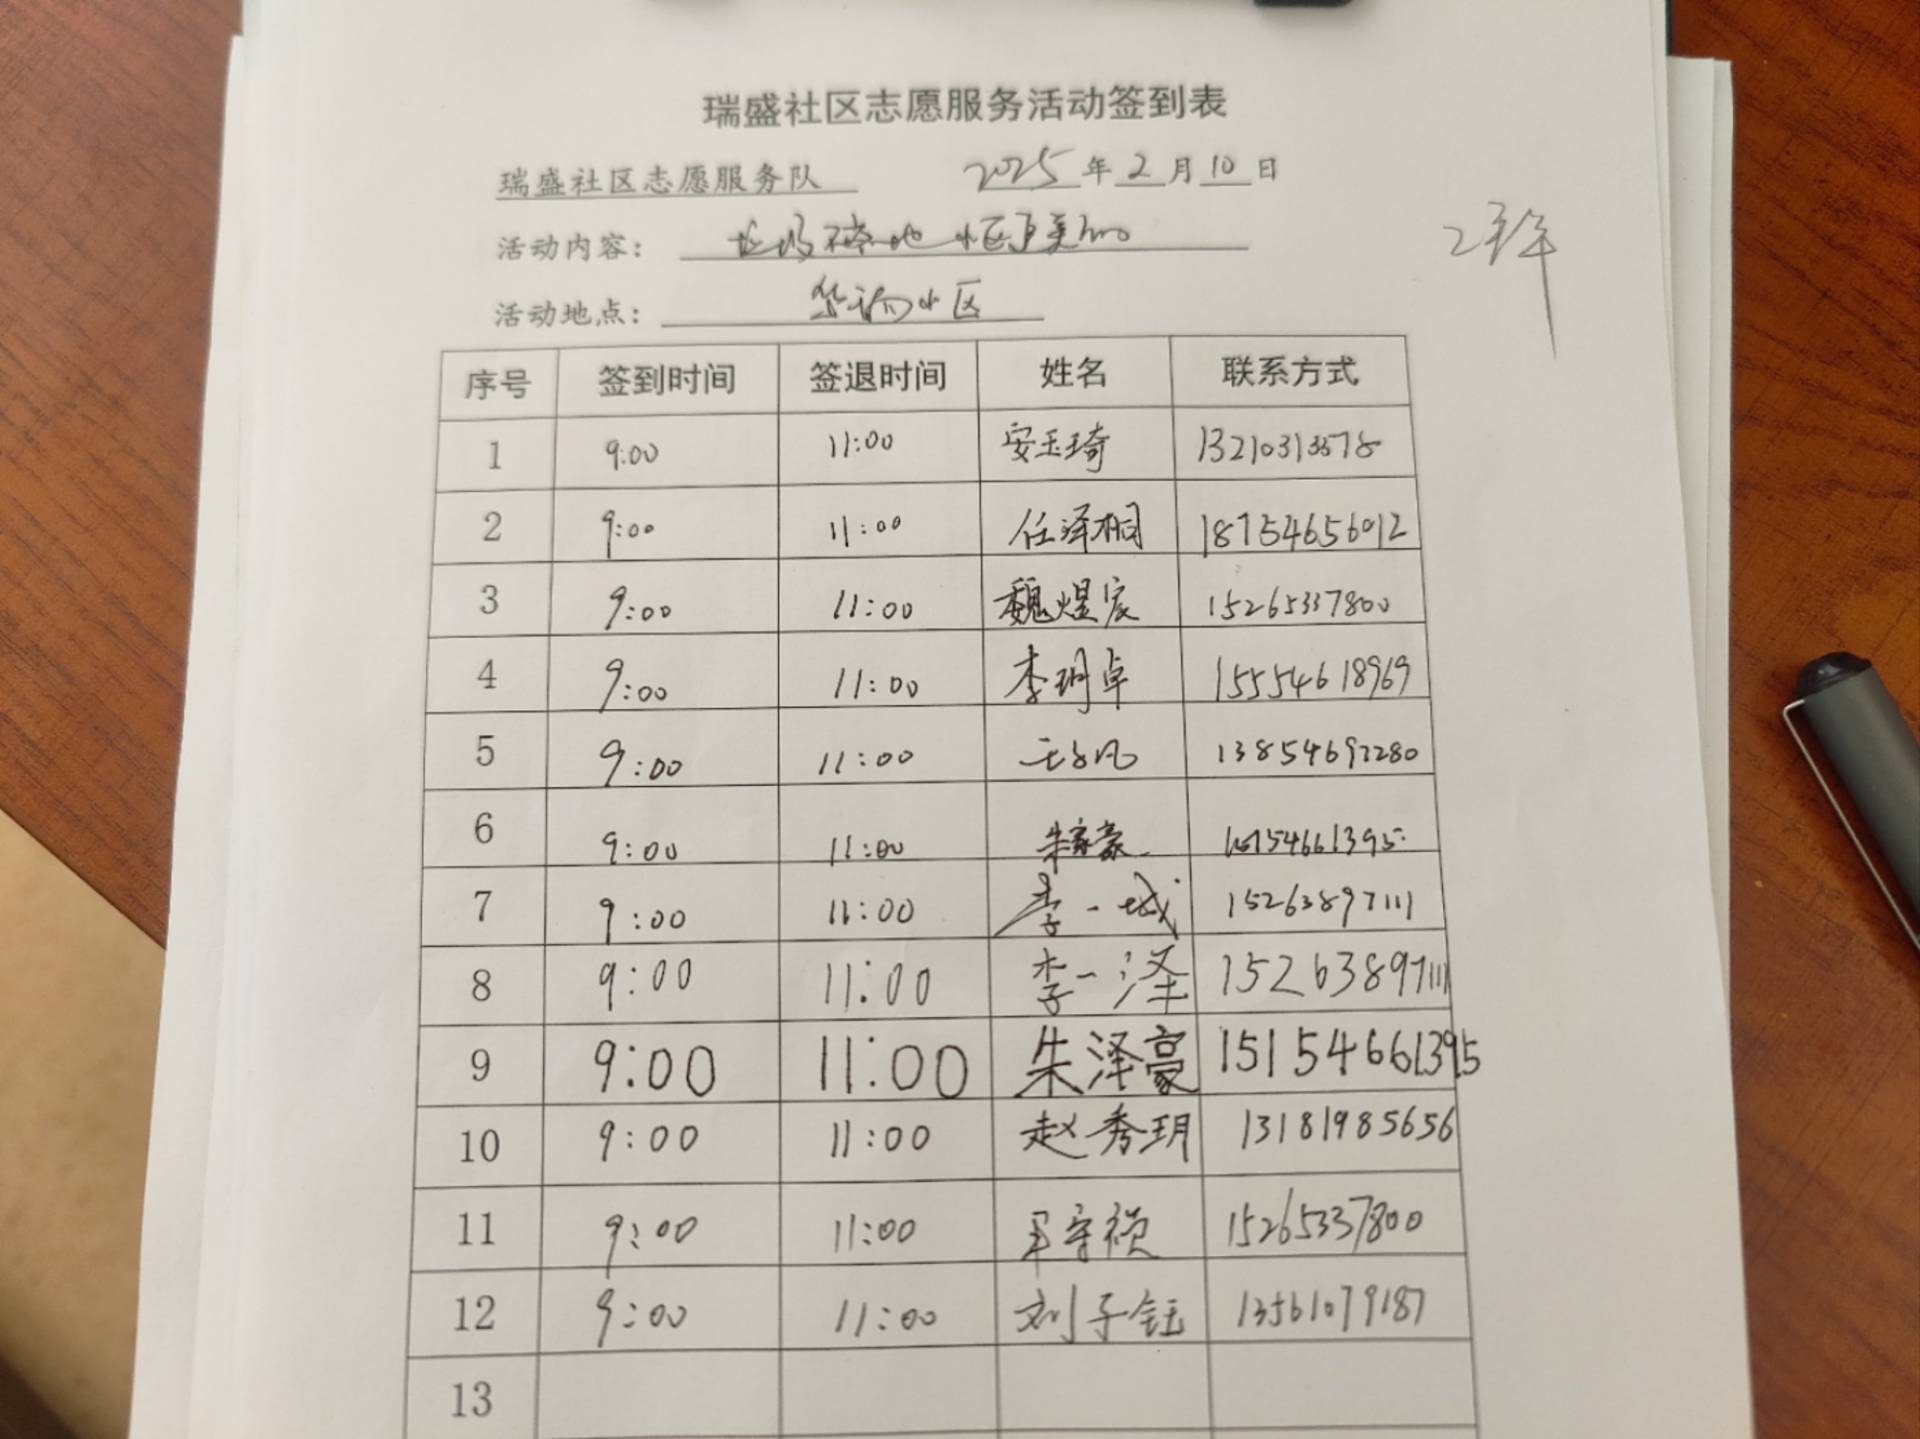 瑞盛社区志愿服务活动签到表
瑞盛社区志愿服务队 2025年2月10日
活动内容： 垃圾不落地 小区更美
活动地点： 小区
序号 签到时间 签退时间 姓名 联系方式
1 9:00 11:00 安玉琦
2 9:00 11:00 任泽桐 18754656012
3 9:00 11:00 魏煜宸 15265337800
4 9:00 11:00 李玥卓 15554618969
5 9:00 11:00
6 9:00 11:00 朱家豪
7 9:00 11:00 李一城 15263897111
8 9:00 11:00 李一泽 15263897111
9 9:00 11:00 朱泽豪 15154661395
10 9:00 11:00 赵秀玥 13181985656
11 9:00 11:00 15265337800
12 9:00 11:00 刘子钰 13561079187
13